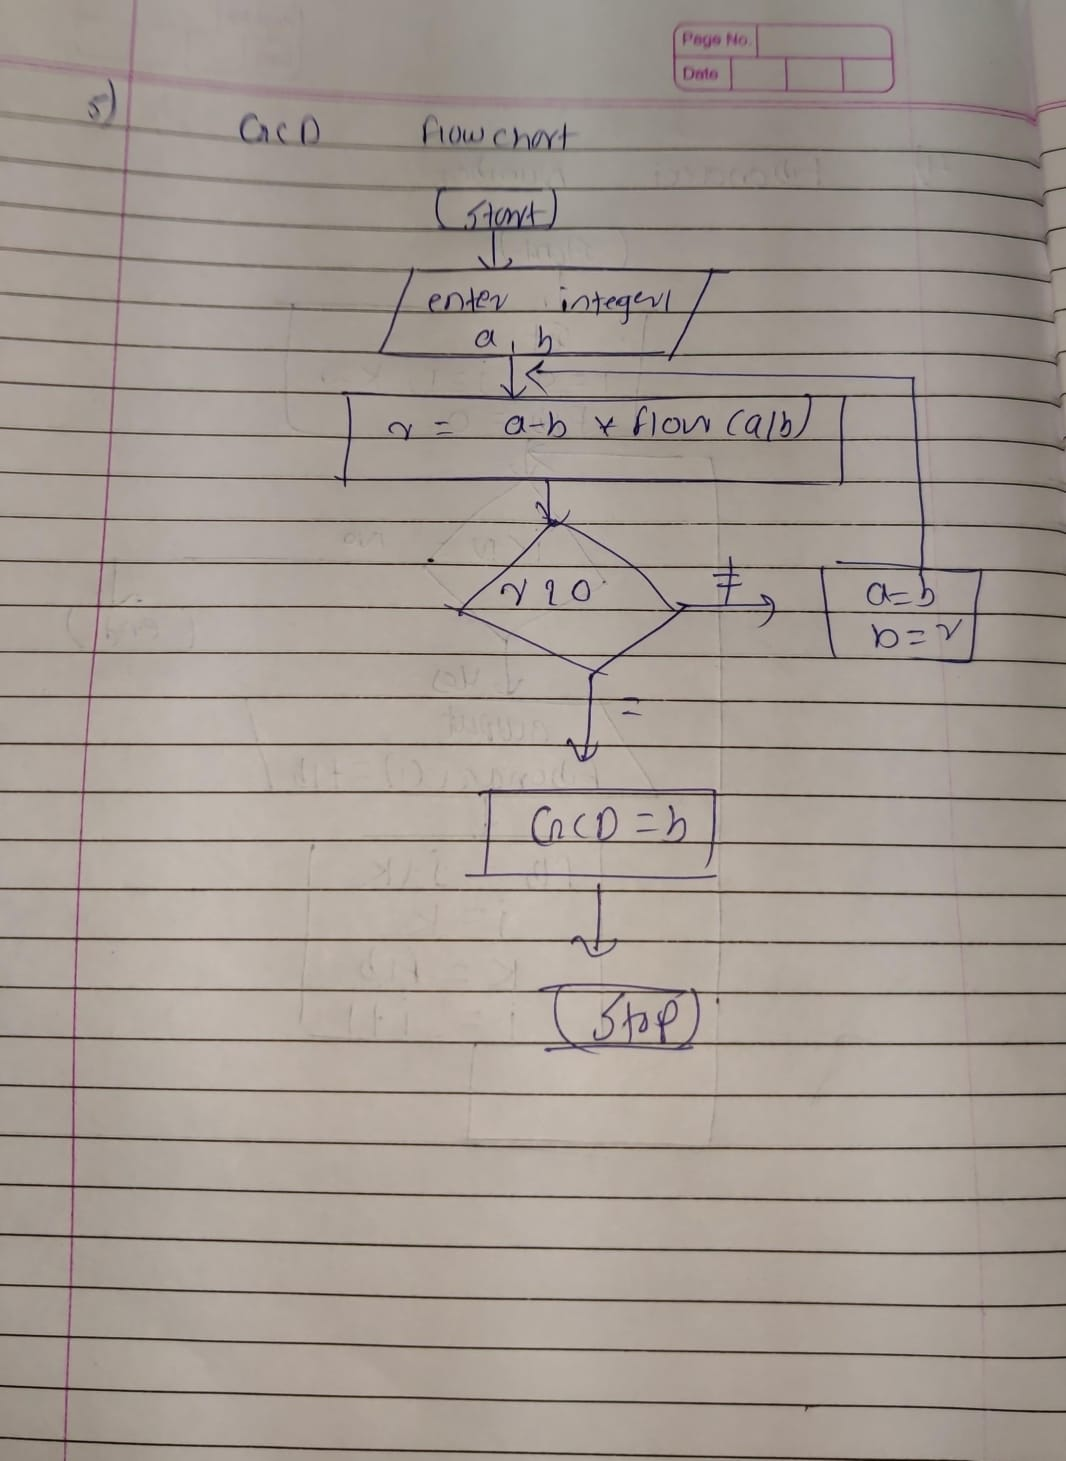 Page No.
Date
5)
GCD flowchart
Start
enter integers
a, b
r = a-b * floor (a/b)
r ? 0
≠
a=b
b=r
=
GCD = b
Stop